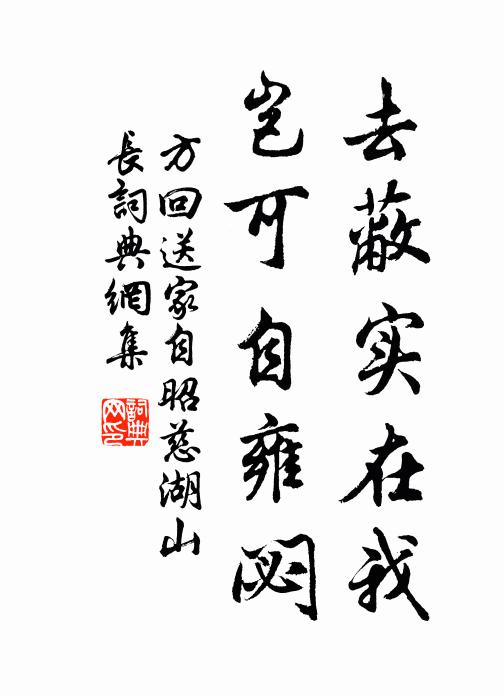 去蔽实在我
岂可自雍閟
方回送家自昭慈湖山
長詞典網集
詞典
网印